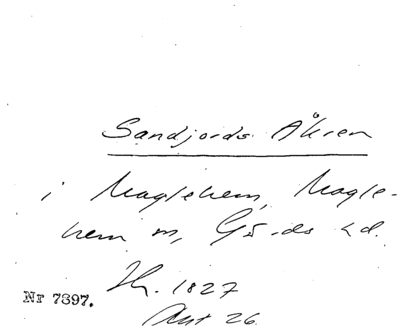 Sandjords Åkren
i Maglehem, Magle-
hem sn, Gärds hd.
Nr 7397.
1827
Akt 26.